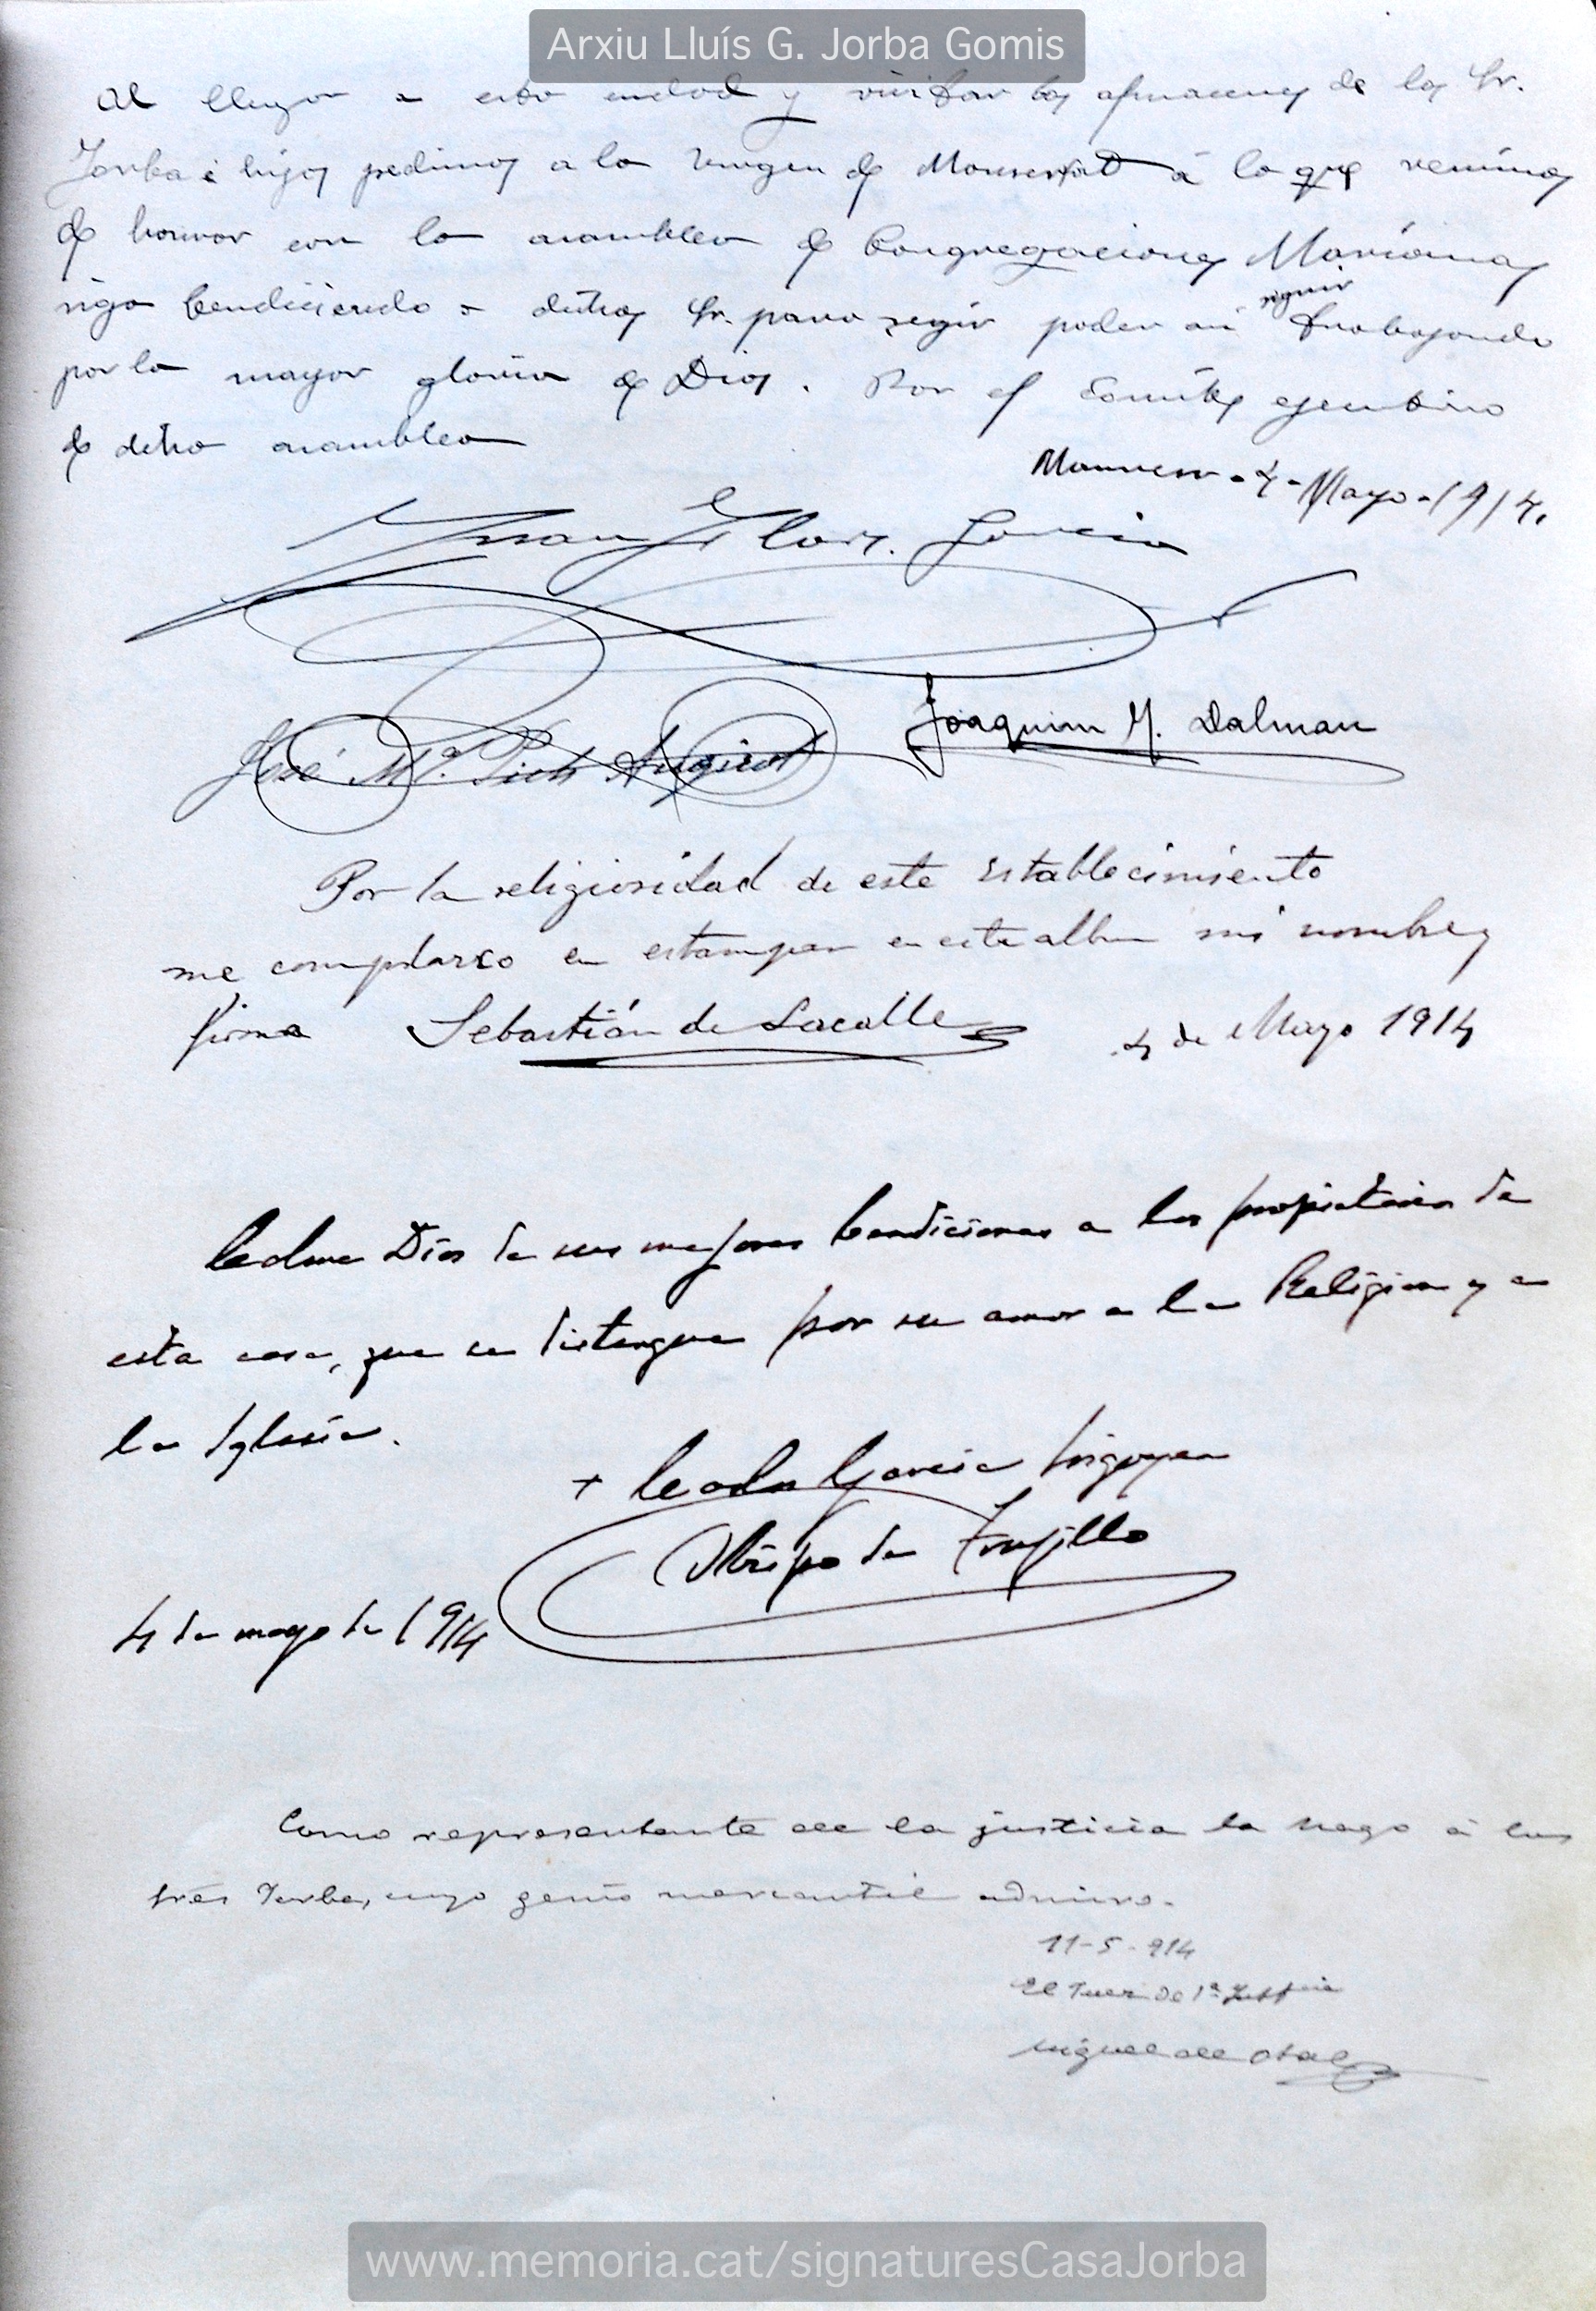 Arxiu Lluís G. Jorba Gomis
Al llegar a esta ciudad y visitar los almacenes de los Sr.
Jorba é hijos pedimos a la Virgen de Monserrat á la que venimos
de honrar con la asamblea de Congregaciones Marianas
siga bendiciendo a dichos Sr. para seguir poder así seguir trabajando
por la mayor gloria de Dios. Por el Comité ejecutivo
de dicha asamblea
Manresa - 4 - Mayo - 1914.
Juan Flors. García
José Mª. Pich
Joaquim M. Dalmau
Por la religiosidad de este establecimiento
me complazco en estampar en este album mi nombre y
firma Sebastián de Lacalle 4 de Mayo 1914
Colme Dios de sus mejores bendiciones a los propietarios de
esta casa, que se distingue por su amor a la Religion y a
la Iglesia.
+ Carlos García Irigoyen
Obispo de Trujillo
4 de mayo de 1914
Como representante de la justicia la hago á los
Sres Jorba, cuyo genio mercantil admiro.
11-5-914
El Juez de 1ª Instancia
Miguel de
www.memoria.cat/signaturesCasaJorba